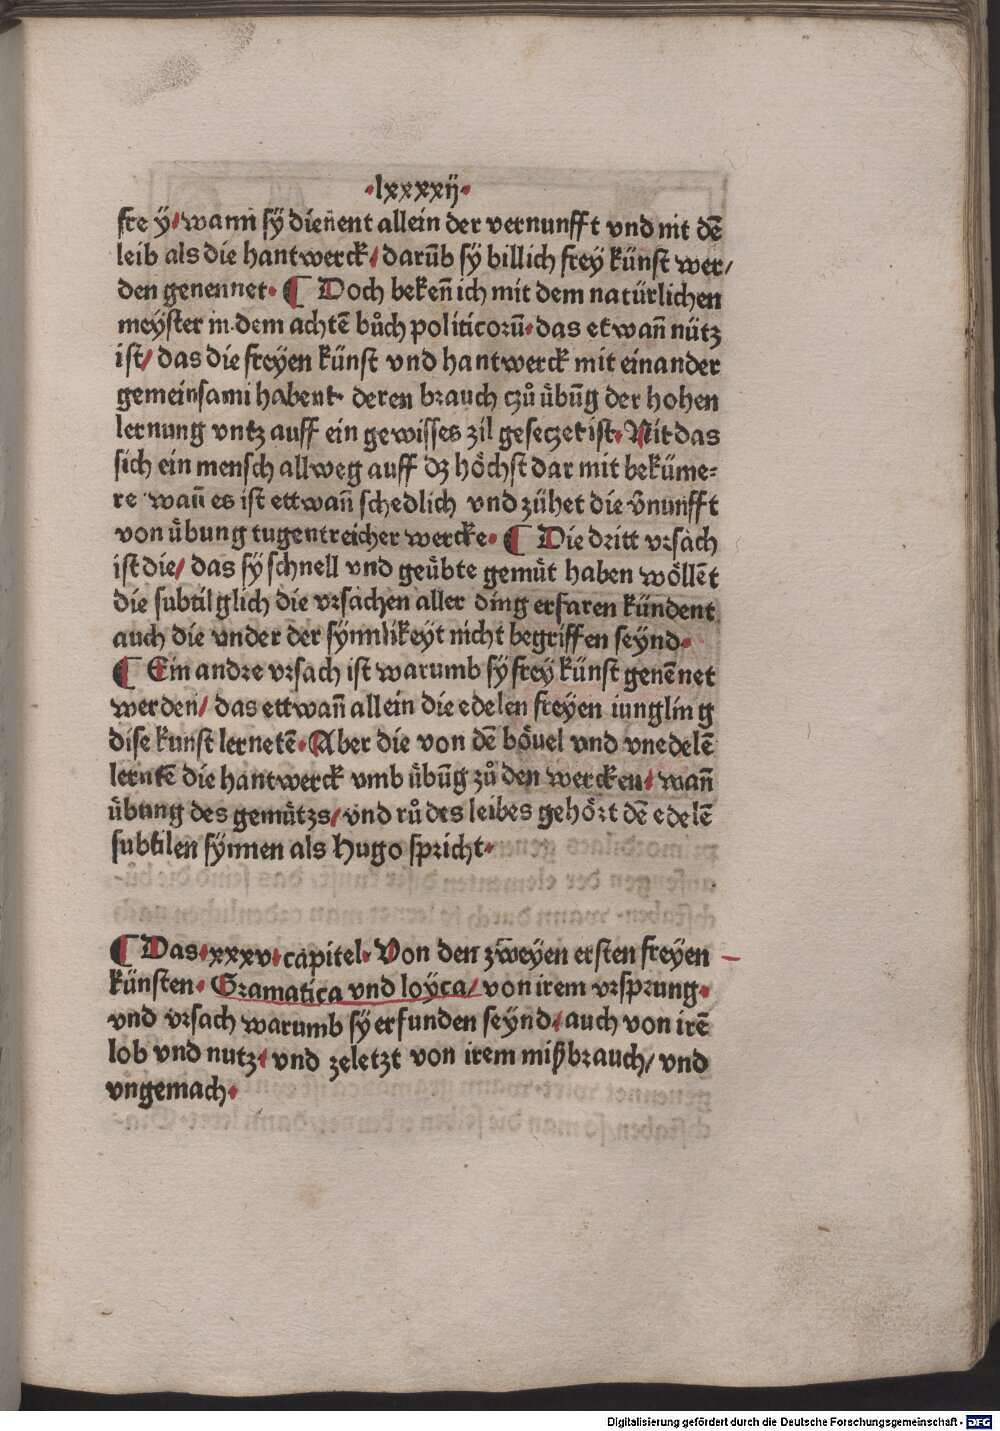 ·lxxxxij·
frey/ wann sÿ dienent allein der vernunfft vnd nit dē
leib als die hantwerck/ darūb sÿ billich frey künst wer/
den genennet· ¶ Doch bekeñ ich mit dem natürlichen
meÿster in dem achtē bůch politicorū· das etwañ nütz
ist/ das die freÿen künst vnd hantwerck mit einander
gemeinsami habent· deren brauch czů übūg der hohen
lernung vntz auff ein gewisses zil gesetzet ist· Nit das
sich ein mensch allweg auff dz höchst dar mit beküme⸗
re wañ es ist ettwañ schedlich vnd zühet die v̄nunfft
von übung tugentreicher wercke· ¶ Die dritt vrsach
ist die/ das sÿ schnell vnd geübte gemüt haben wöllēt
die subtilglich die vrsachen aller ding erfaren kündent
auch die vnder der sÿnnlikeyt nicht begriffen seÿnd·
¶ Ein andre vrsach ist warumb sÿ frey künst genēnet
werden/ das ettwañ allein die edelen freyen iungling
dise kunst lernetē· Aber die von dē bövel vnd vnedelē
lerntē die hantwerck vmb übūg zů den wercken/ wañ
übung des gemützs/ vnd rů des leibes gehört dē edelē
subtilen sÿnnen als Hugo spricht·
¶ Das·xxxv·capitel· Von den zweÿen ersten freyen
künsten· Gramatica vnd loÿca/ von irem vrsprung·
vnd vrsach warumb sÿ erfunden seÿnd/ auch von irē
lob vnd nutz/ vnd zeletzt von irem mißbrauch/ vnd
vngemach·
Digitalisierung gefördert durch die Deutsche Forschungsgemeinschaft - DFG